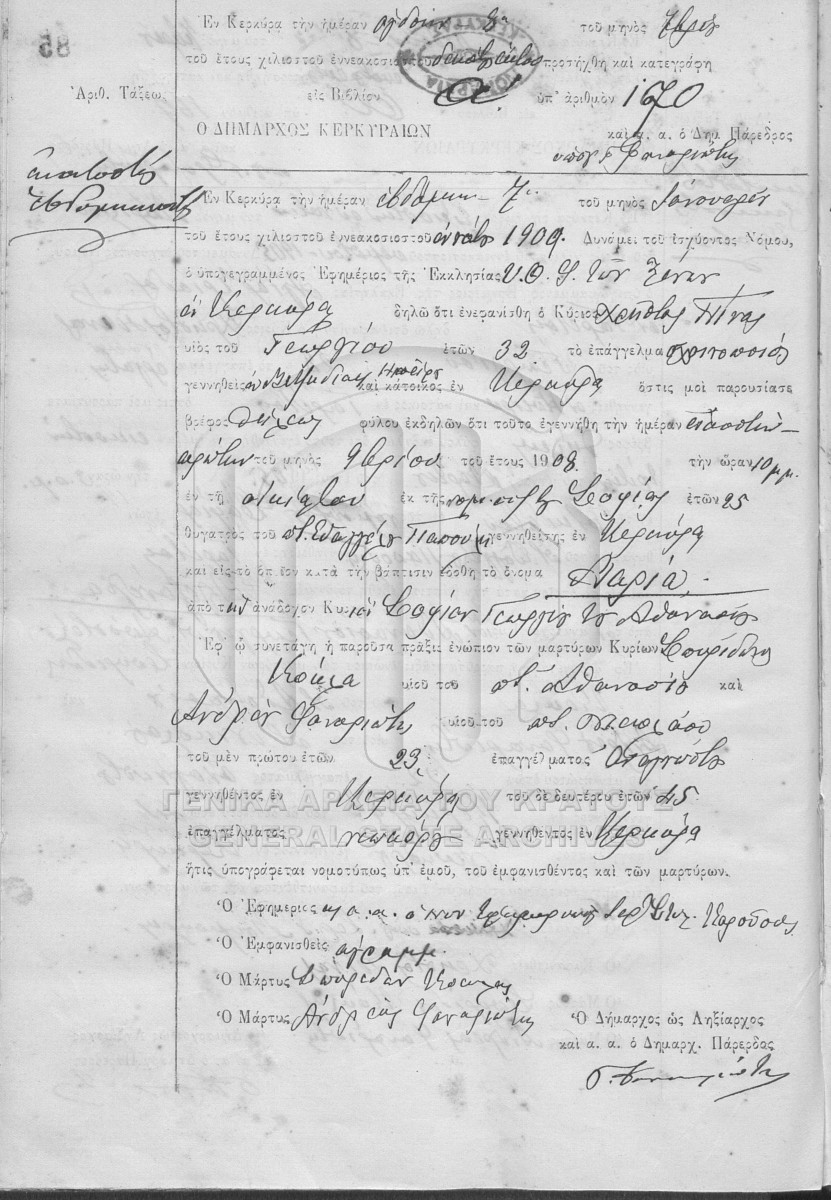 85
Ἐν Κερκύρᾳ τὴν ἡμέραν ὀγδόην 8η τοῦ μηνὸς
τοῦ ἔτους χιλιοστοῦ ἐννεακοσιοστοῦ προσήχθη καὶ κατεγράφη
Ἀριθ. Τάξεω. εἰς Βιβλίον α ὑπ' ἀριθμὸν 170
Ο ΔΗΜΑΡΧΟΣ ΚΕΡΚΥΡΑΙΩΝ
καὶ α. α. ὁ Δημ. Πάρεδρος
Φαναριώτης
ἑκατοστὴ
ἑβδομηκοστὴ
Ἐν Κερκύρᾳ τὴν ἡμέραν ἑβδόμην 7ην τοῦ μηνὸς Ἰανουαρίου
τοῦ ἔτους χιλιοστοῦ ἐννεακοσιοστοῦ ἐννάτου 1909. Δυνάμει τοῦ ἰσχύοντος Νόμου,
ὁ ὑπογεγραμμένος Ἐφημέριος τῆς Ἐκκλησίας Υ. Θ. τῶν Ξένων
ἐν Κερκύρᾳ δηλῶ ὅτι ἐνεφανίσθη ὁ Κύριος Χρῆστος
υἱὸς τοῦ Γεωργίου ἐτῶν 32 τὸ ἐπάγγελμα
γεννηθεὶς ἐν Ἠπείρου καὶ κάτοικος ἐν Κερκύρᾳ ὅστις μοὶ παρουσίασε
βρέφος θήλεως φύλου ἐκδηλῶν ὅτι τοῦτο ἐγεννήθη τὴν ἡμέραν εἰκοστὴν
πρώτην τοῦ μηνὸς 9βρίου τοῦ ἔτους 1908 τὴν ὥραν 10 μ.μ.
ἐν τῇ οἰκίᾳ του ἐκ τῆς συζύγου Σοφίας ἐτῶν 25
θυγατρὸς τοῦ ποτ. Εὐαγγέλου γεννηθείσης ἐν Κερκύρᾳ
καὶ εἰς τὸ ὁποῖον κατὰ τὴν βάπτισιν ἐδόθη τὸ ὄνομα Μαρία
ἀπὸ τὴν ἀνάδοχον Κυρίαν Σοφίαν Γεωργίου τοῦ Ἀθανασίου
Ἐφ' ᾧ συνετάγη ἡ παροῦσα πρᾶξις ἐνώπιον τῶν μαρτύρων Κυρίων Σπυρίδωνος
υἱοῦ τοῦ ποτ. Ἀθανασίου καὶ
Ἀνδρέου Φαναριώτη υἱοῦ τοῦ ποτ.
τοῦ μὲν πρώτου ἐτῶν 23 ἐπαγγέλματος
γεννηθέντος ἐν Κερκύρᾳ τοῦ δὲ δευτέρου ἐτῶν 45
ΓΕΝΙΚΑ ΑΡΧΕΙΑ ΤΟΥ ΚΡΑΤΟΥΣ
GENERAL STATE ARCHIVES
ἐπαγγέλματος γεννηθέντος ἐν Κερκύρᾳ
ἥτις ὑπογράφεται νομοτύπως ὑπ' ἐμοῦ, τοῦ ἐμφανισθέντος καὶ τῶν μαρτύρων.
Ὁ Ἐφημέριος
Ὁ Ἐμφανισθεὶς ἀγράμμ.
Ὁ Μάρτυς Σπυρίδων
Ὁ Μάρτυς Ἀνδρέας Φαναριώτης
Ὁ Δήμαρχος ὡς Ληξίαρχος
καὶ α. α. ὁ Δημαρχ. Πάρερδος
Γ. Φαναριώτης